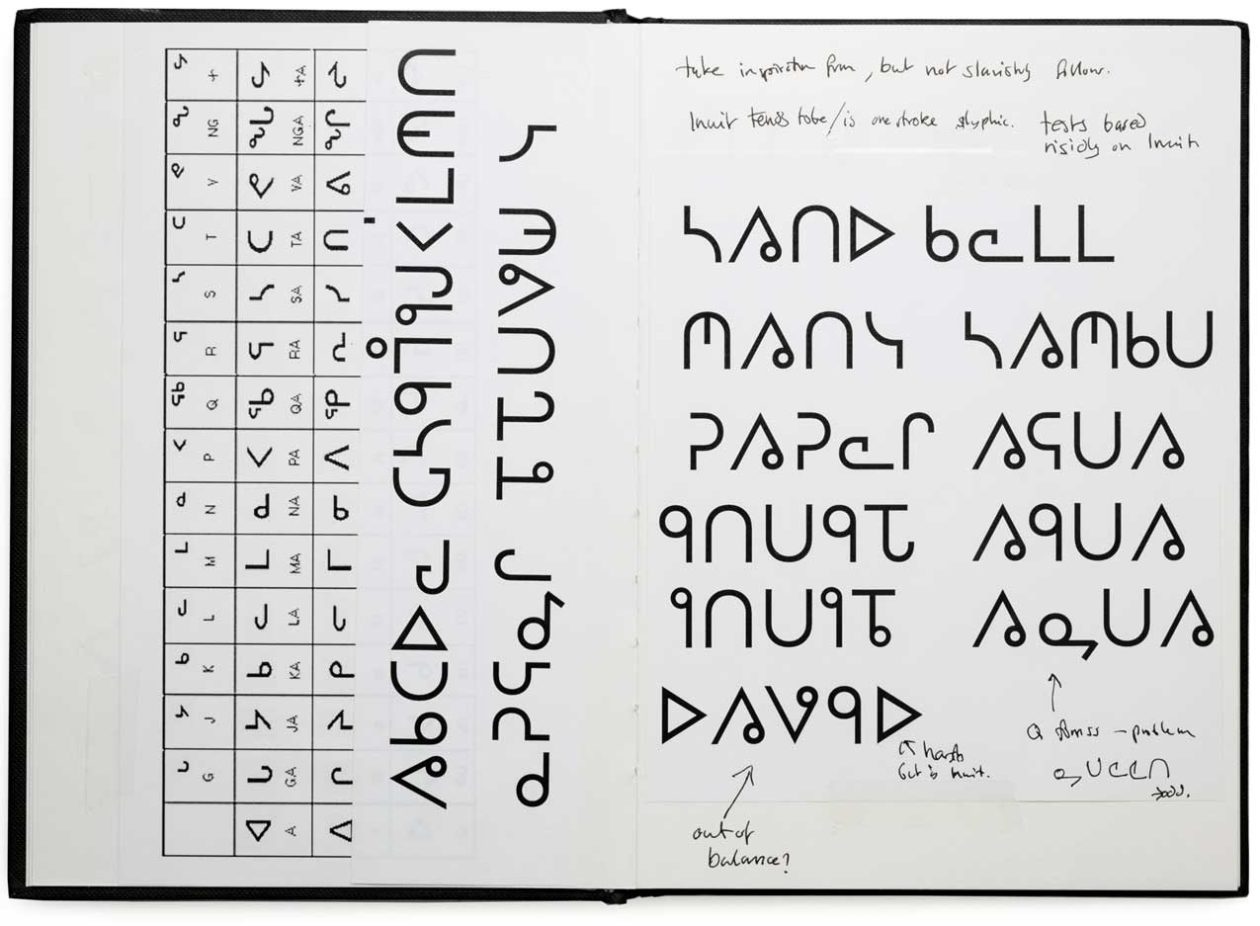 ᒡ ᔾ ᒃ ᓪ ᒻ ᓐ ᑉ ᖅ ᕐ ᔅ ᑦ ᕝ ᖕ ᖦ
G J K L M N P Q R S T V NG ɬ
ᐊ ᒐ ᔭ ᑲ ᓚ ᒪ ᓇ ᐸ ᖃ ᕋ ᓴ ᑕ ᕙ ᖓ ᖤ
A GA JA KA LA MA NA PA QA RA SA TA VA NGA ɬA
ᐅ ᒍ ᔪ ᑯ ᓗ ᒧ ᓄ ᐳ ᖁ ᕈ ᓱ ᑐ ᕗ ᖑ ᖢ
AbCDE GHIIJKLMN
OPQQR TTUVWY
take inspiration from, but not slavishly follow.
Inuit tends to be/is one stroke glyphic. tests based
rigidly on Inuit
HAND bELL
MANY HAMbU
PAPER AQUA
INUIT AQUA
INUIT AQUA
DAVID
↑ harsh
but is Inuit.
out of
balance?
Q forms – problem
QUEEN